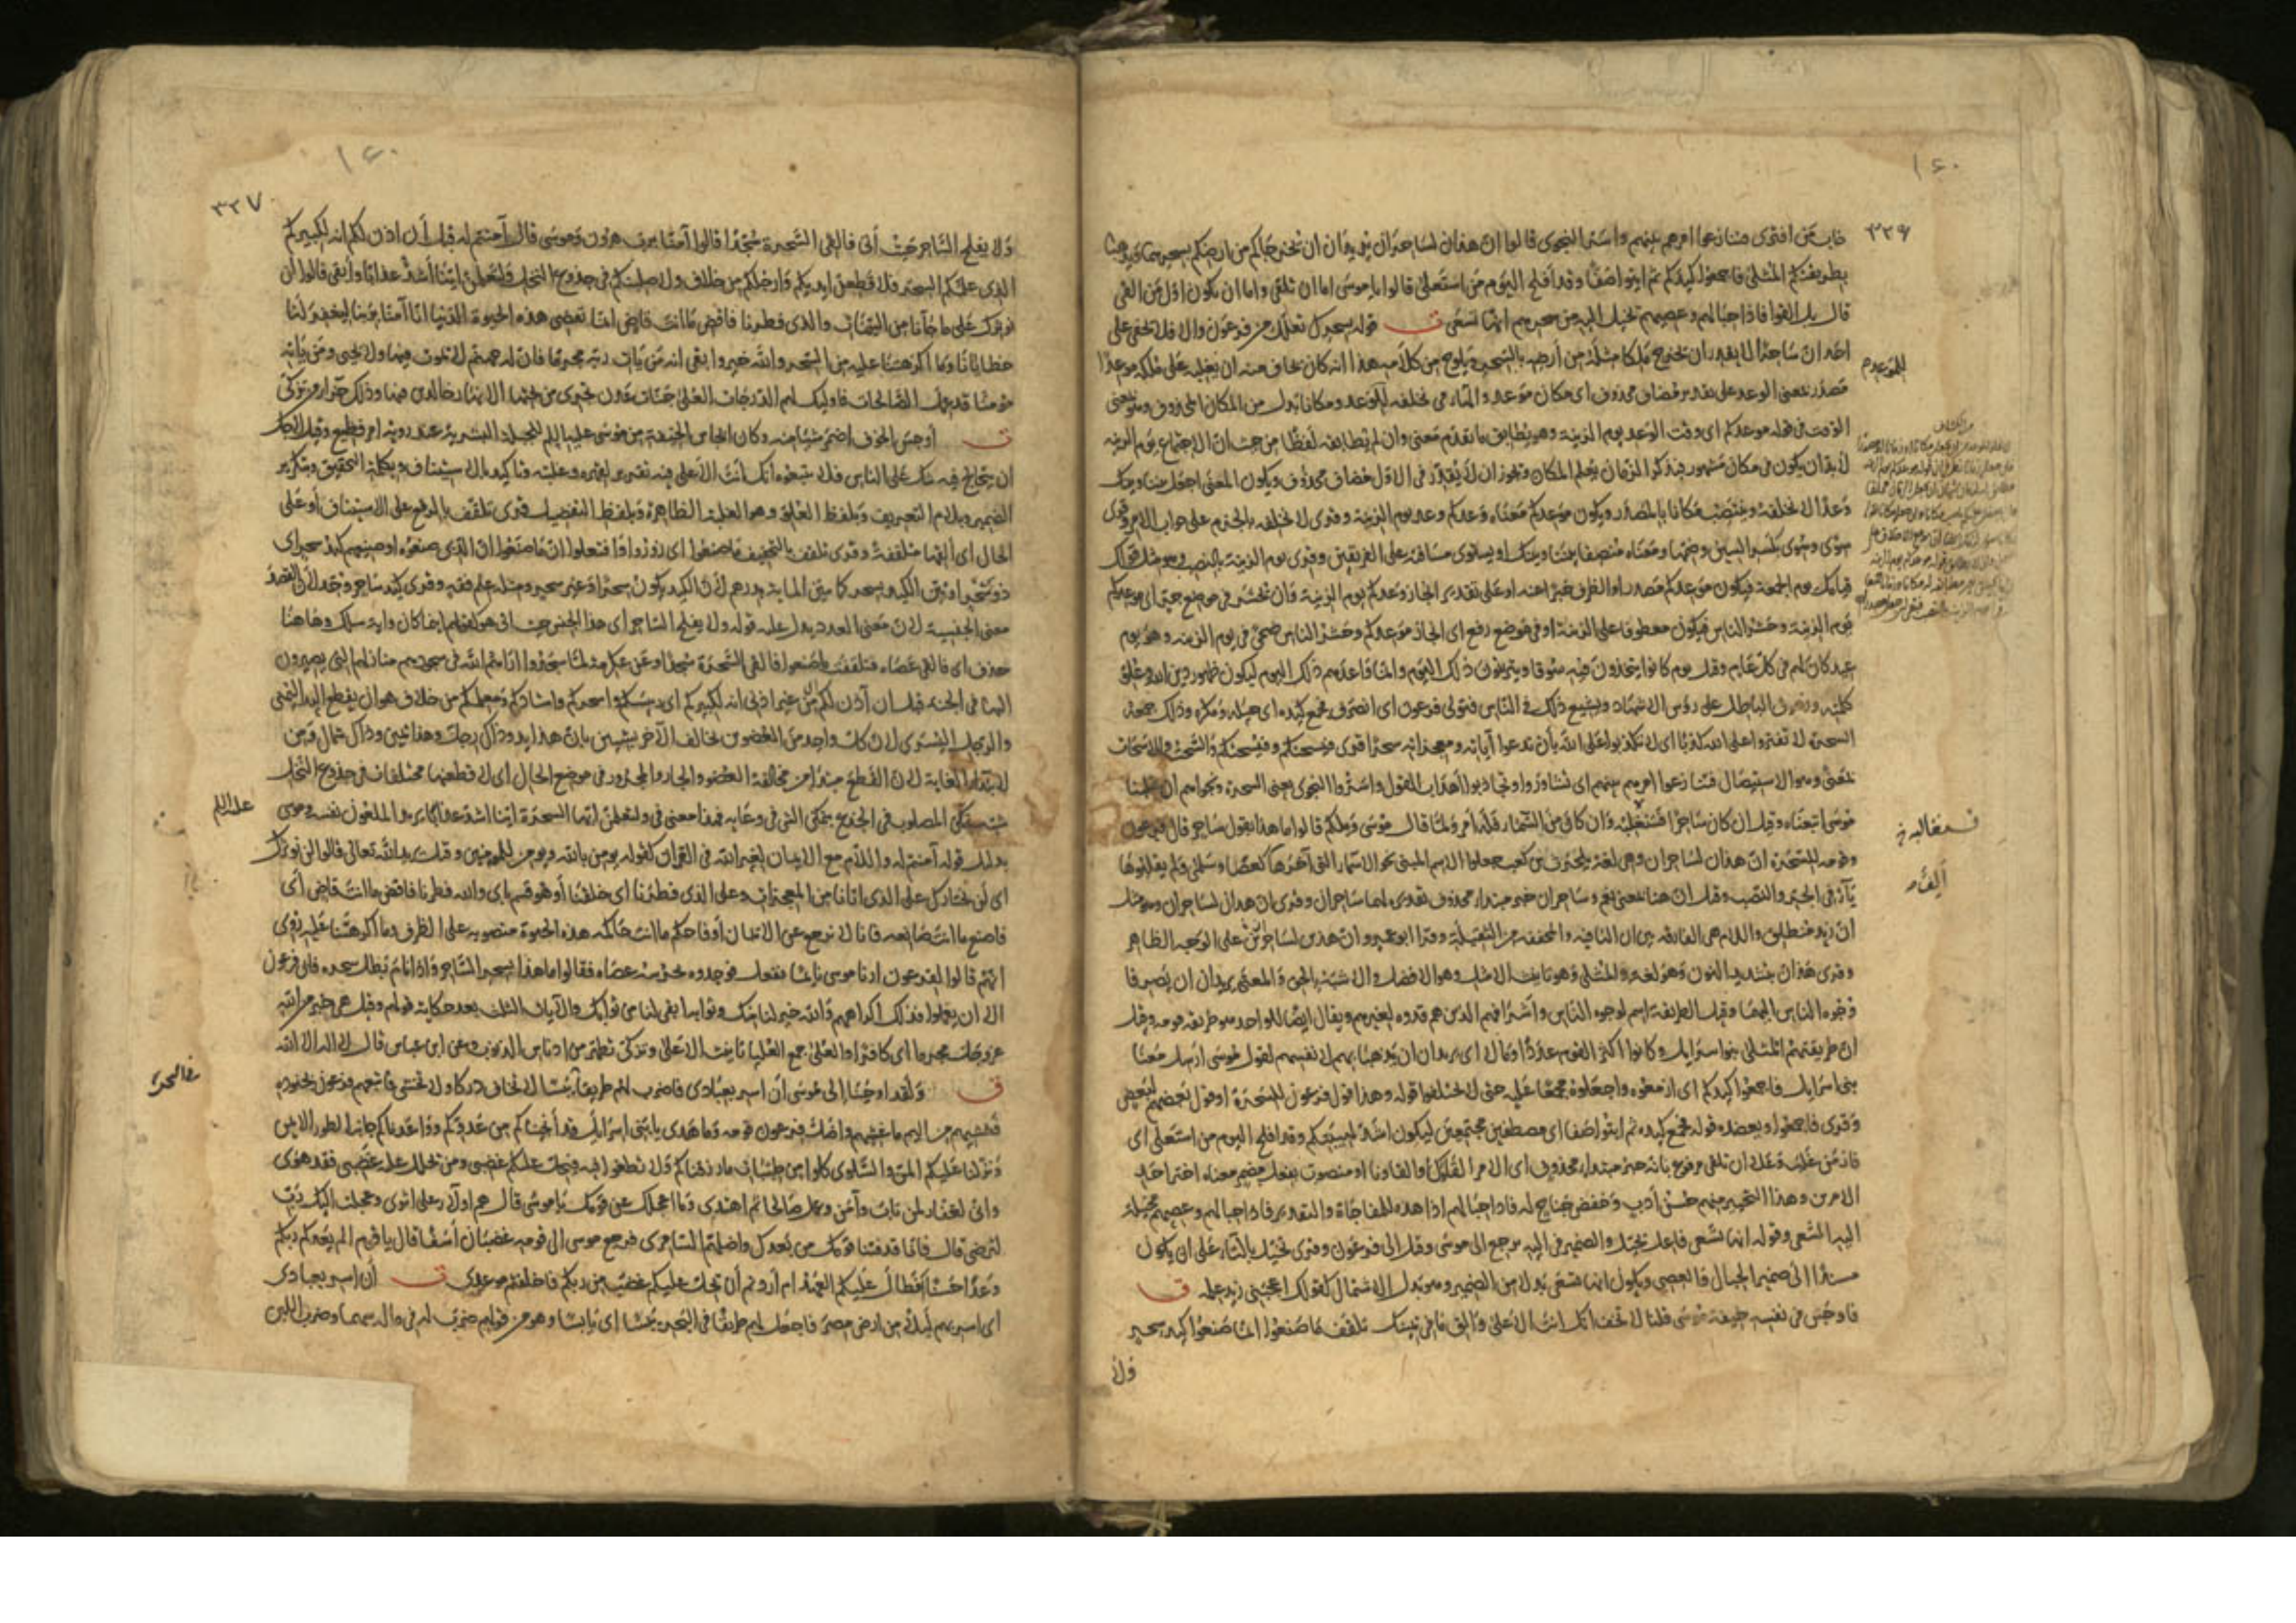 ١٤٠
٣٢٦
خاب من افترى فتنازعوا امرهم بينهم واسروا النجوى قالوا ان هذان لساحران يريدان ان يخرجاكم من ارضكم بسحرهما ويذهبا
بطريقتكم المثلى فاجمعوا كيدكم ثم ايتوا صفا وقد افلح اليوم من استعلى قالوا يا موسى اما ان تلقي واما ان نكون اول من القى
قال بل القوا فاذا حبالهم وعصيهم تخيل اليه من سحرهم انها تسعى ت قوله بسحرك تعلل من فرعون والا فلا يخفى على
احد ان ساحرا لا يقدر ان يخرج ملكا مثله من ارضه بالسحر ويلوح من كلامه هذا انه كان يخاف منه ان يغلبه على ملكه موعدا
مصدر بمعنى الوعد على تقدير مضاف محذوف اى مكان موعد والهاء فى نخلفه للموعد ومكانا بدل من المكان المحذوف
الوقت فى قوله موعدكم اى وقت الوعد يوم الزينة وهو يطابق ما تقدم معنى وان لم يطابقه لفظا من حيث ان الاجتماع يوم الزينه
لا بد ان يكون فى مكان مشهور فبذكر الزمان يعلم المكان ويجوز ان لا يقدر فى الاول مضاف محذوف ويكون المعنى اجعل بيننا وبينك
وعدا لا نخلفه وينتصب مكانا بالمصدر ويكون موعدكم معناه وعدكم وعد يوم الزينة وقرى لا نخلفه بالجزم على جواب الامر وقرى
سوى وسوى بكسر السين وضمها ومعناه منصفا بيننا وبينك او يستوى مسافته على الفريقين وقرى يوم الزينة بالنصب وهو مثل قولك
قيامك يوم الجمعة فيكون موعدكم مصدرا والظرف خبرا عنه او على تقدير انجاز وعدكم يوم الزينة وان يحشر فى موضع جر اى موعدكم
يوم الزينة وحشر الناس فيكون معطوفا على الزينة او فى موضع رفع اى انجاز موعدكم وحشر الناس ضحى فى يوم الزينه وهو يوم
عيد كان لهم فى كل عام وقيل يوم كانوا يتخذون فيه سوقا ويتزينون ذلك اليوم وانما واعدهم ذلك اليوم ليكون ظهور دين الله وغلبة
كلمته وزهوق الباطل على رؤس الاشهاد ويشيع ذلك فى الناس فتولى فرعون اى انصرف فجمع كيده اى حيله ومكره وذلك جمعه
السحرة لا تفتروا على الله كذبا اى لا تكذبوا على الله بان تدعوا آياته ومعجزاته سحرا قرى فيسحتكم وفيسحتكم والسحت والاسحات
بمعنى وهو الاستيصال فتنازعوا امرهم بينهم اى تشاوروا وتجاذبوا اهداب القول واسروا النجوى يعنى السحرة ونجواهم ان غلبنا
موسى اتبعناه وقيل ان كان ساحرا فسنغلبه وان كان من السماء فله امر ولما قال موسى ويلكم قالوا ما هذا بقول ساحر قال فرعون
وقومه للسحرة ان هذان لساحران وهى لغة بلحرث بن كعب جعلوا الاسم المبنى نحو الاسماء التى آخرها كعصا وسلمى فلم يقلبوها
ياء فى الجر والنصب وقيل ان هنا بمعنى نعم وساحران خبر مبتداء محذوف تقديره لهما ساحران وقرى ان هذان لساحران وهو مثل
ان زيد لمنطلق واللام هى الفارقه بين ان النافيه والمخففه من الثقيلة وقرا ابو عمرو ان هذين لساحرين على الوجه الظاهر
وقرى هذان بتشديد النون وهو لغه والمثلى وهو تانيث الامثل وهو الافضل والاشبه بالحق والمعنى يريدان ان يصرفا
وجوه الناس اليهما وقيل الطريقة اسم لوجوه الناس واشرافهم الذين هم قدوه لغيرهم ويقال ايضا للواحد هو طريقة قومه وقيل
ان طريقتهم المثلى بنو اسرايل وكانوا اكثر القوم عددا ومالا اى يريدان ان يذهبا بهم لانفسهم لقول موسى ارسل معنا
بنى اسرايل فاجمعوا كيدكم اى ازمعوه واجعلوه مجمعا عليه حتى لا تختلفوا قوله وهذا قول فرعون للسحرة او قول بعضهم لبعض
وقرى فاجمعوا ويعضده قوله فجمع كيده ثم ايتوا صفا اى مصطفين مجتمعين ليكون اشد لهيبتكم وقد افلح اليوم من استعلى اى
فاز من غلب وعلا ان تلقى مرفوع بانه خبر مبتداء محذوف اى الامر القاؤك او القاونا او منصوب بفعل مضمر معناه اختر احد
الامرين وهذا التخيير منهم حسن ادب وخفض جناح له فاذا حبالهم اذا هذه للمفاجاة والتقدير فاذا حبالهم وعصيهم مخيلة
اليه السعى وقوله انها تسعى فاعل يخيل والضمير فى اليه يرجع الى موسى وقيل الى فرعون وقرى تخيل بالتاء على ان يكون
مسندا الى ضمير الحبال والعصى ويكون انها تسعى بدلا من الضمير وهو بدل الاشتمال كقولك اعجبنى زيد علمه ق
فاوجس فى نفسه خيفة موسى قلنا لا تخف انك انت الاعلى والق ما فى يمينك تلقف ما صنعوا انما صنعوا كيد سحر
ولا
للموعد
فسنغالبه
الف
١٤٠
٣٢٧
ولا يفلح الساحر حيث أتى فالقى السحرة سجدا قالوا آمنا برب هرون وموسى قال آمنتم له قبل أن اذن لكم انه لكبيركم
الذى علمكم السحر فلا قطعن ايديكم وارجلكم من خلاف ولاصلبنكم فى جذوع النخل ولتعلمن اينا أشد عذابا وأبقى قالوا لن
نوثرك على ما جآنا من البينات والذى فطرنا فاقض ما انت قاض انما تقضى هذه الحيوة الدنيا انا آمنا بربنا ليغفر لنا
خطايانا وما اكرهتنا عليه من السحر والله خير وابقى انه من يات ربه مجرما فان له جهنم لا يموت فيها ولا يحيى ومن ياته
مومنا قد عمل الصالحات فاوليك لهم الدرجات العلى جنات عدن تجرى من تحتها الانهار خالدين فيها وذلك جزاء من تزكى
ت أوجس الخوف اضمر شيئا منه وكان ايجاس الخيفة من موسى عليه السلم للجبلة البشرية عند رويه امر فظيع وقيل انه كان
ان يتخالج فيه شك على الناس فلا يتبعوه انك انت الاعلى فيه تقرير لقهره وغلبته وتاكيد بالاستيناف وبكلمة التحقيق وبتكرير
الضمير وبلام التعريف وبلفظ العلو وهو الغلبة الظاهرة وبلفظ التفضيل قرى تلقف بالرفع على الاستيناف او على
الحال اى القها متلقفة وقرى تلقف بالتخفيف ما صنعوا اى زوروا وافتعلوا ان ما صنعوا ان الذى صنعوه كيد سحر اى
ذو سحر او بين الكيد بسحر كما يبين المائة بدرهم لان الكيد يكون سحرا وغير سحر ومثله علم فقه وقرى كيد ساحر وحد لان القصد
معنى الجنسية لا ان معنى العدد يدل عليه قوله ولا يفلح الساحر اى هذا الجنس حيث اتى هو كقولهم اينما كان واية سلك وهاهنا
حذف اى فالقى عصاه فتلقفت ما صنعوا فالقى السحرة سجدا وعن عكرمه لما سجدوا اراهم الله فى سجودهم منازلهم التى يصيرون
اليها فى الجنه قبل ان آذن لكم من غير اذنى انه لكبيركم اى رئيسكم واسحركم واستاذكم ومعلمكم من خلاف هو ان يقطع اليد اليمنى
والرجل اليسرى لان كل واحد من العضوين يخالف الآخر بان هذا يد وذاك رجل وهذا يمين وذاك شمال ومن
لابتداء الغاية لان القطع مبتدأ من مخالفة العضو والجار والمجرور فى موضع الحال اى لاقطعنها مختلفات فى جذوع النخل
شبه تمكن المصلوب فى الجذع بتمكن الشى فى وعايه فهذا معنى فى ولتعلمن ايها السحرة اينا اشد عذابا يريد الملعون نفسه وموسى
بدليل قوله آمنتم له واللام مع الايمان لغير الله فى القران كقوله يومن بالله ويومن للمومنين وقيل يريد الله تعالى قالوا لن نوثرك
اى لن نختارك على الذى اتانا من المعجزات وعلى الذى فطرنا اى خلقنا أو هو قسم اى والله فطرنا فاقض ما انت قاض أى
فاصنع ما انت صانعه فانا لا نرجع عن الايمان او فاحكم ما انت حاكمه هذه الحيوة منصوبه على الظرف وما اكرهتنا عليه روى
انهم قالوا لفرعون ارنا موسى نايما ففعل فوجدوه تحرسه عصاه فقالوا ما هذا بسحر الساحر واذا نام بطل سحره فابى فرعون
الا ان يعملوا فذلك اكراههم والله خير لنا منك وثوابه ابقى لنا من ثوابك والآيات الثلث بعد حكاية قولهم وقيل هى خبر من الله
عز وجل مجرما اى كافرا والعلى جمع العليا تانيث الاعلى وتزكى تطهر من ادناس الذنوب وعن ابن عباس قال لا اله الا الله
ق ولقد اوحينا إلى موسى أن اسر بعبادى فاضرب لهم طريقا يبسا لا تخاف دركا ولا تخشى فاتبعهم فرعون بجنوده
فغشيهم من اليم ما غشيهم واضل فرعون قومه وما هدى يا بنى اسرايل قد أنجيناكم من عدوكم وواعدناكم جانب الطور الايمن
ونزلنا عليكم المن والسلوى كلوا من طيبات ما رزقناكم ولا تطغوا فيه فيحل عليكم غضبى ومن يحلل عليه غضبى فقد هوى
وانى لغفار لمن تاب وآمن وعمل صالحا ثم اهتدى وما اعجلك عن قومك يا موسى قال هم اولآء على اثرى وعجلت اليك رب
لترضى قال فانا قد فتنا قومك من بعدك واضلهم السامرى فرجع موسى الى قومه غضبان أسفا قال يا قوم الم يعدكم ربكم
وعدا حسنا أفطال عليكم العهد ام أردتم أن يحل عليكم غضب من ربكم فاخلفتم موعدى ت أن اسر بعبادى
اى اسر بهم ليلا من ارض مصر فاجعل لهم طريقا فى البحر يبسا اى يابسا وهو من قولهم ضرب له فى ماله سهما وضرب اللبن
عليه السلم
فى البحر